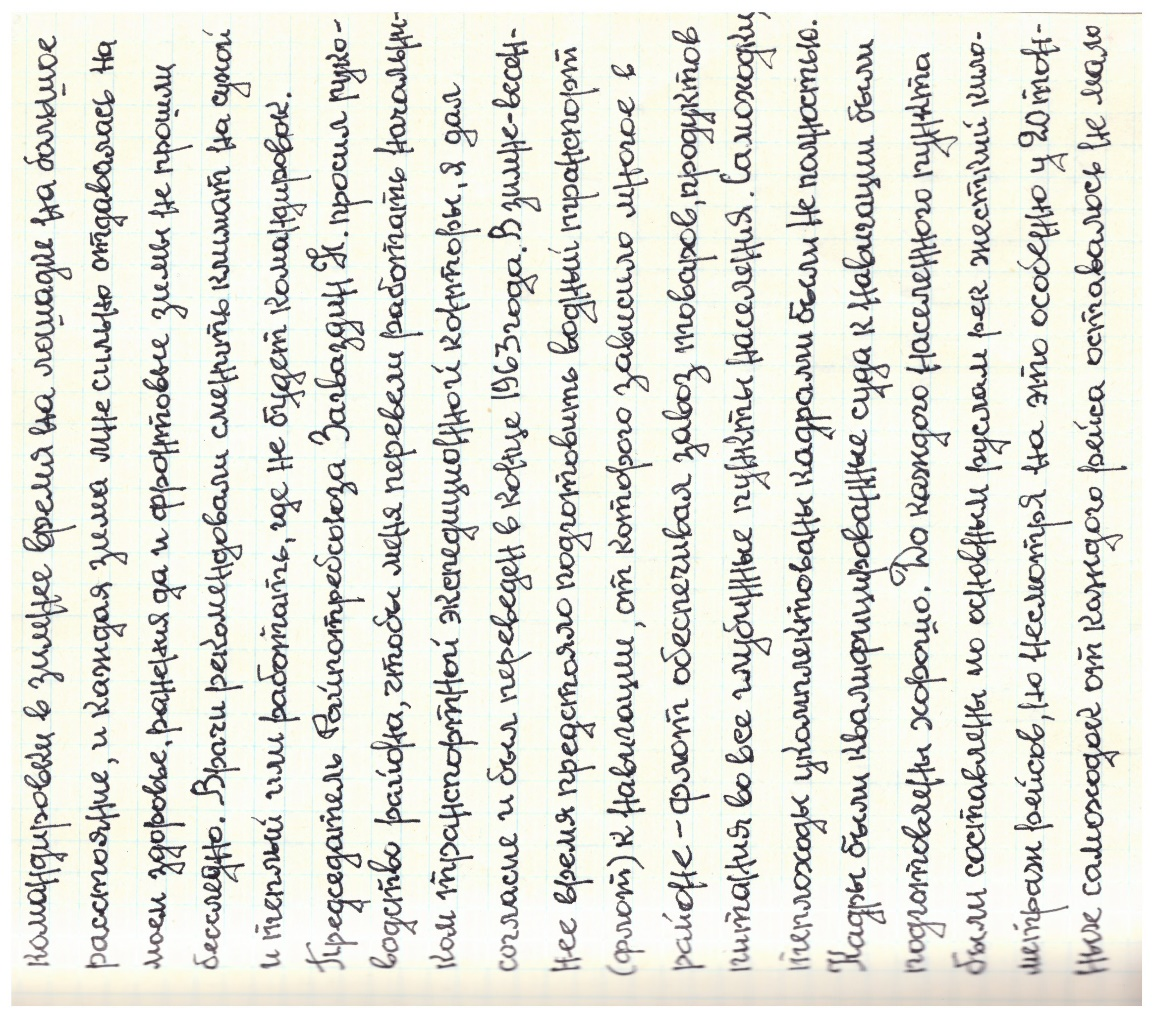 командировки в зимнее время на лошадие на большое
расстояние, и каждая зима мне сильно отдавалась на
моем здоровье, ранения да и фронтовые зимы не прошли
бесследно. Врачи рекомендовали сменить климат на сухой
и теплый или работать, где не будет командировок.
Председатель Райпотребсоюза Загваздин Н. просил руко-
водство района, чтобы меня перевели работать начальни-
ком транспортной экспедиционной конторы, я дал
согласие и был переведен в конце 1963 года. В зимне-весен-
нее время предстояло подготовить водный транспорт
(флот) к навигации, от которого зависило многое в
районе - флот обеспечивал завоз товаров, продуктов
питания во все глубинные пункты населения. Самоходки,
теплоходы укомплектованы кадрами были не полностью.
Кадры были квалифицированные суда к навигации были
подготовлены хорошо. До каждого населенного пункта
были составлены по основным руслам рек жесткий кило-
метраж рейсов, но несмотря на это особенно у 20 тон-
ные самоходки от каждого рейса оставалось не мало